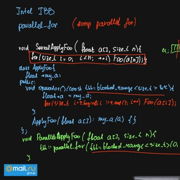 Intel TBB
parallel_for (omp parallel for)
void SerialApplyFoo (float a[], size_t n){
for(size_t i=0; i<n; ++i) Foo(a[i]);
class ApplyFoo{
float *my_a;
public:
void operator()(const tbb::blocked_range<size_t>
float *a = my_a;
for(size_t i
ApplyFoo(float a[]): my_a(a) {}
};
void ParallelApplyFoo (float a[], size_t n){
tbb::parallel_for(tbb::blocked_range<size_t>(0,
}
@mail.ru